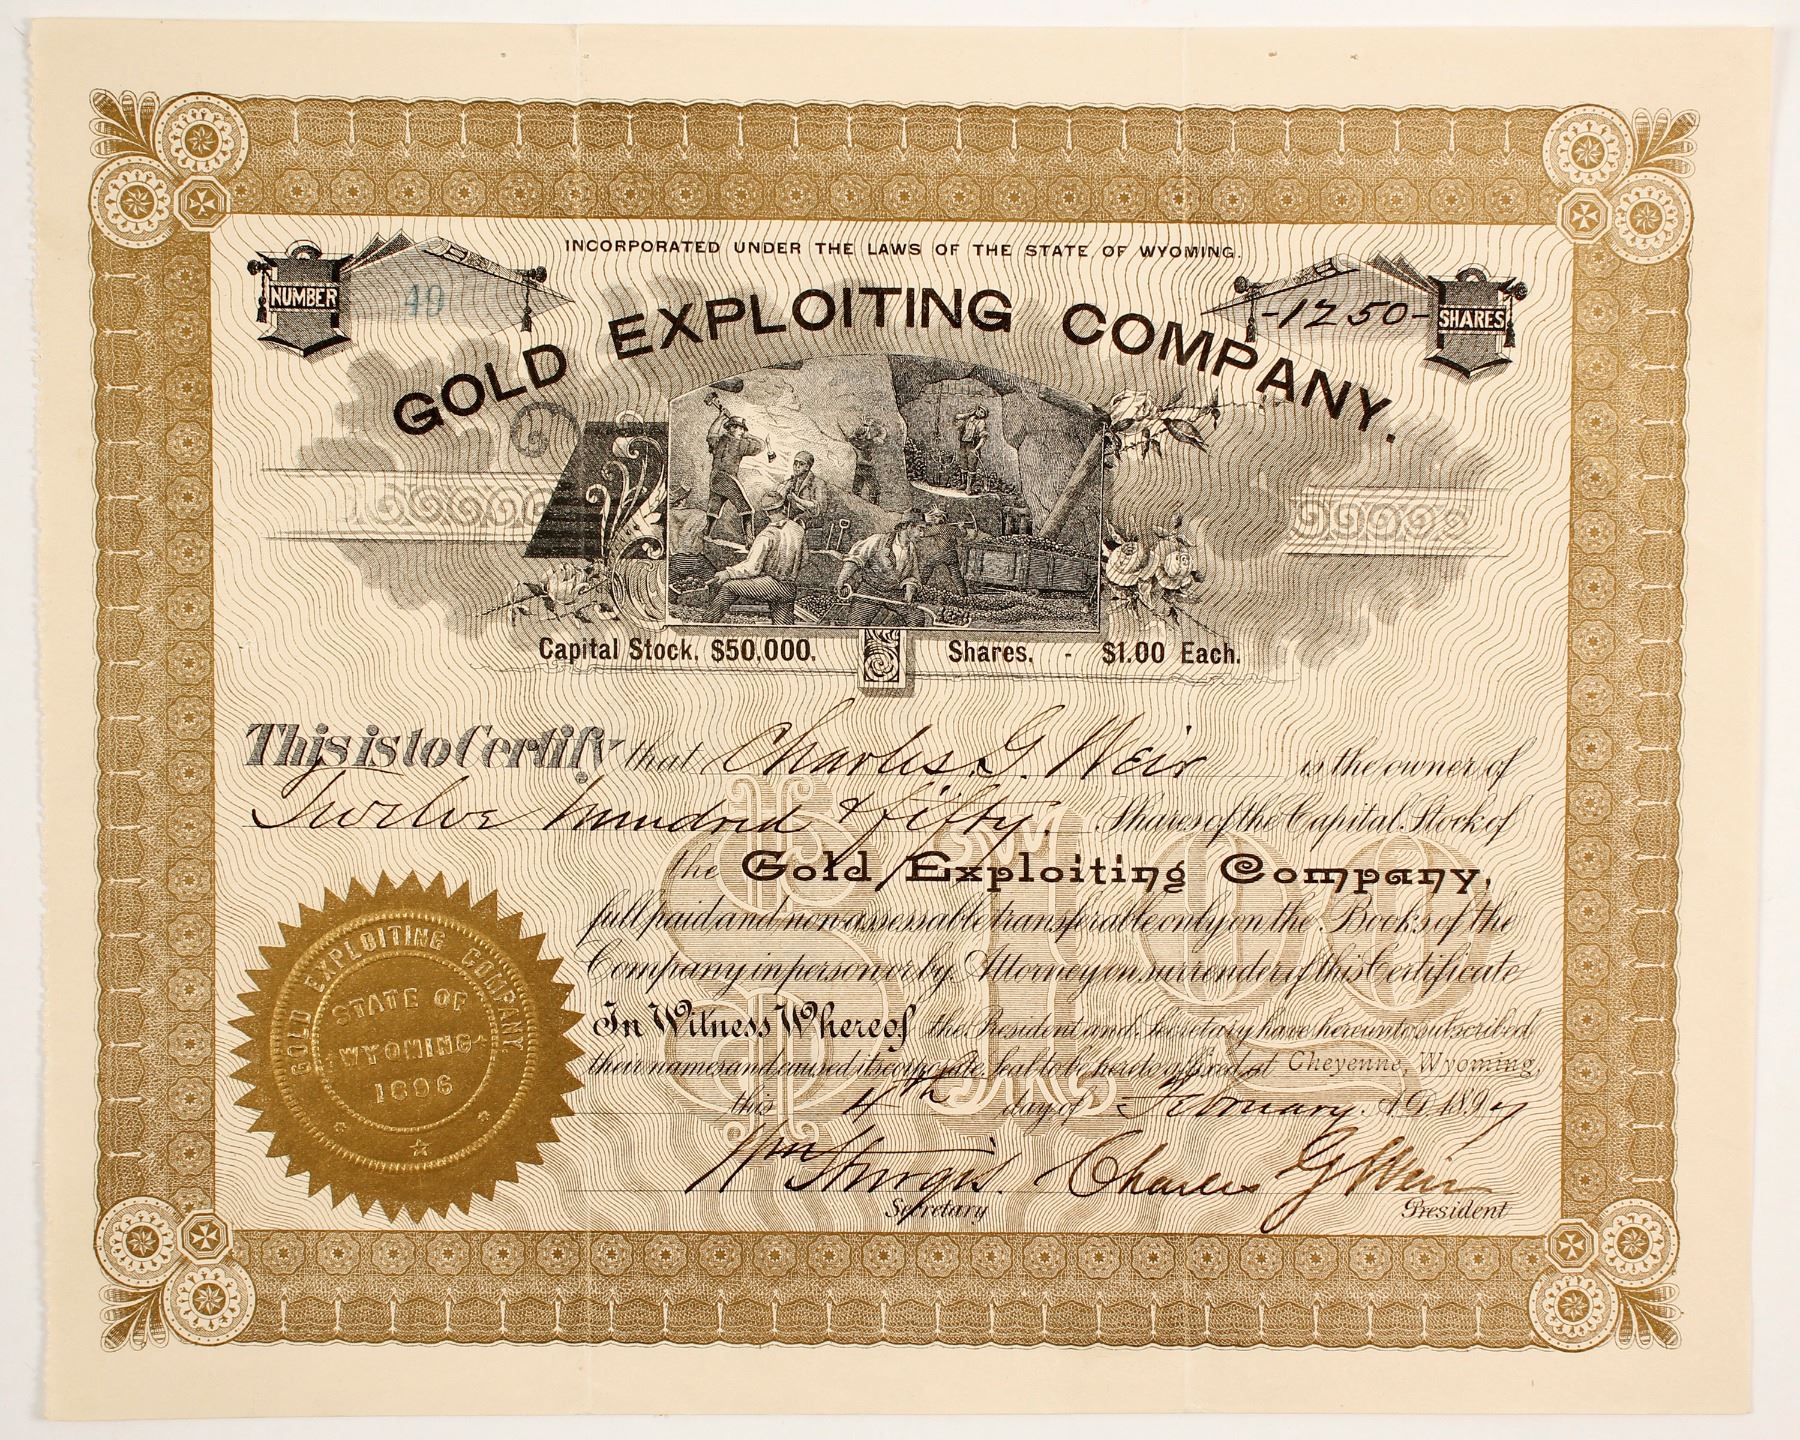 INCORPORATED UNDER THE LAWS OF THE STATE OF WYOMING.
NUMBER 40
-1250- SHARES
GOLD EXPLOITING COMPANY.
Capital Stock, $50,000. Shares, - $1.00 Each.
This is to Certify that Charles G. Weir is the owner of
Twelve hundred & fifty. Shares of the Capital Stock of
the Gold Exploiting Company,
full paid and non assessable transferable only on the Books of the
Company in person or by Attorney on surrender of this Certificate
In Witness Whereof the President and Secretary have hereunto subscribed
their names and caused its corporate Seal to be hereto affixed at Cheyenne, Wyoming,
this 4th day of February. A.D. 1897
Wm Sturgis. Charles G Weir
Secretary President
$1.00
GOLD EXPLOITING COMPANY
STATE OF
WYOMING
1896